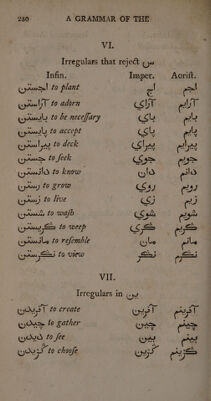 280 A GRAMMAR OF THE
VI.
Irregulars that reject س
Infin. Imper. Aorist.
to plant
آراستن to adorn آراي آرايم
بايستن to be necessary باي بايم
to accept
پيراستن to deck پيراي پيرايم
جستن to seek جوي جويم
دانستن to know دان دانم
رستن to grow روي رويم
زيستن to live زي زيم
شستن to wash شوي شويم
گريستن to weep گري گريم
مانستن to resemble مان مانم
نگريستن to view نگر نگرم
VII.
Irregulars in ين
آفريدن to create آفرين آفرينم
چيدن to gather چين چينم
ديدن to see بين بينم
گزيدن to choose گزين گزينم